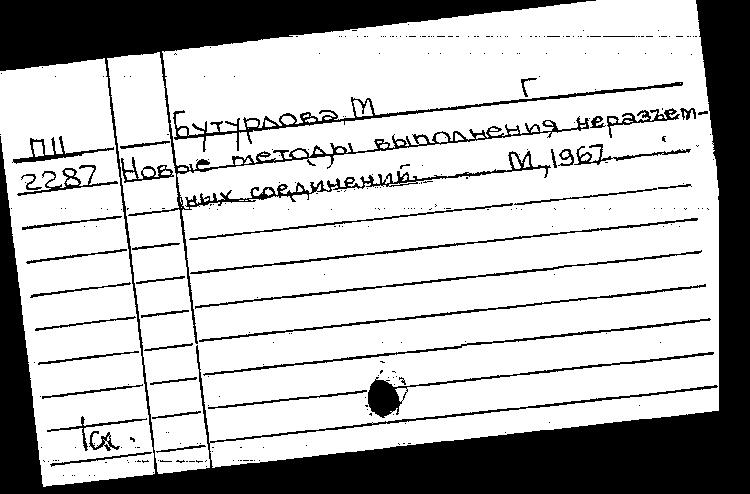 Бутурлова, М Г
П11
2287 Новые методы выполнения неразъем-
ных соединений. М., 1967
1ск.